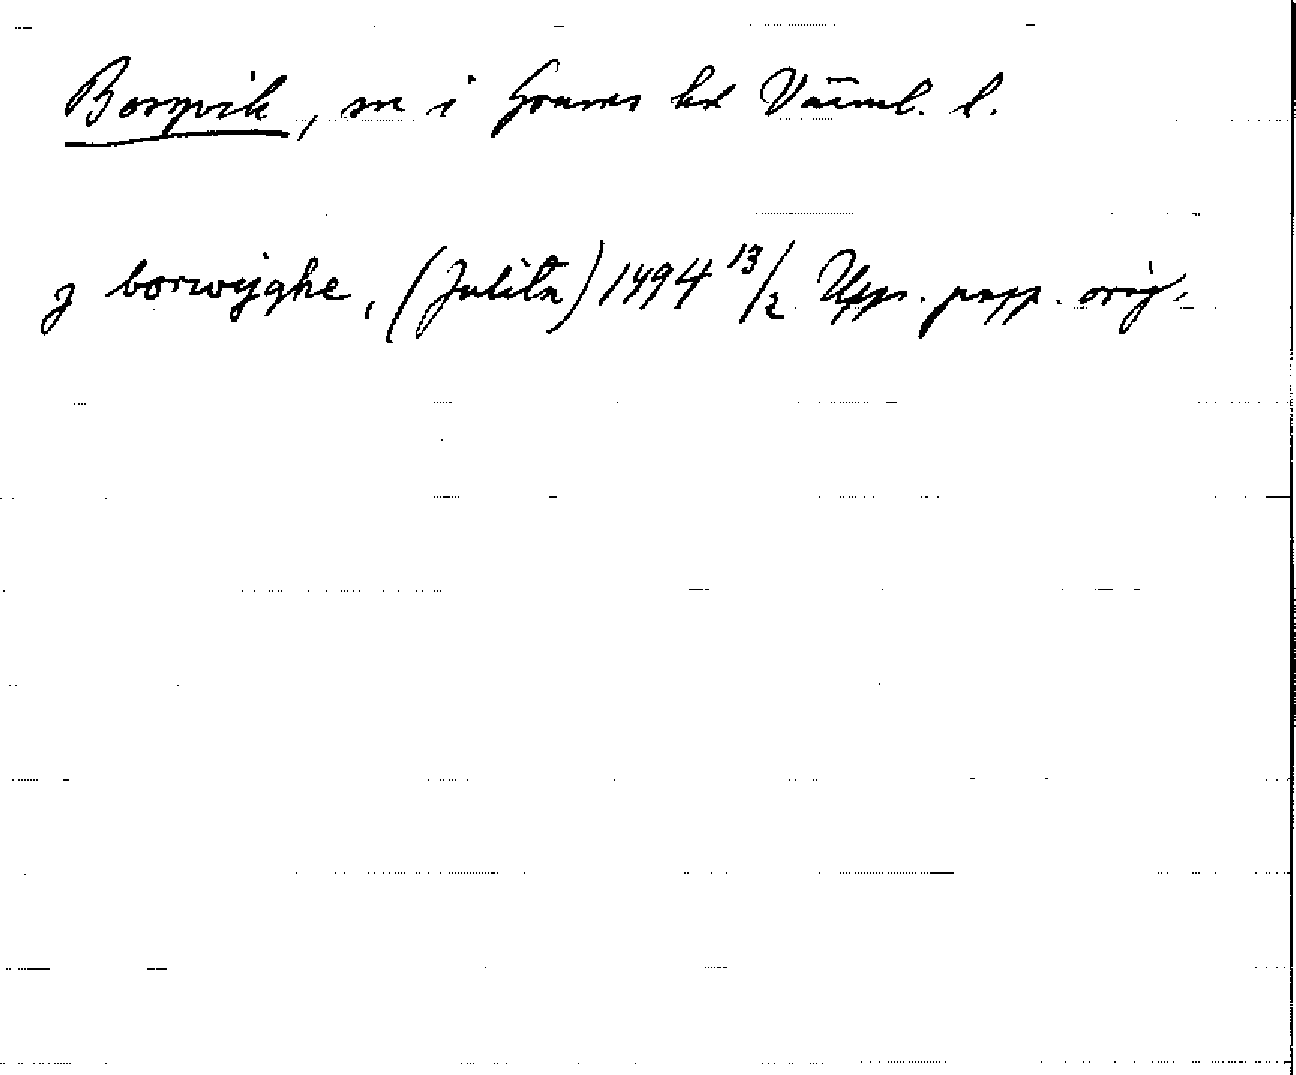 Borgvik, sn i Grums hd Värml. l.
j borwijghe, (Julita) 1494 13/2 Upps. papp. orig.